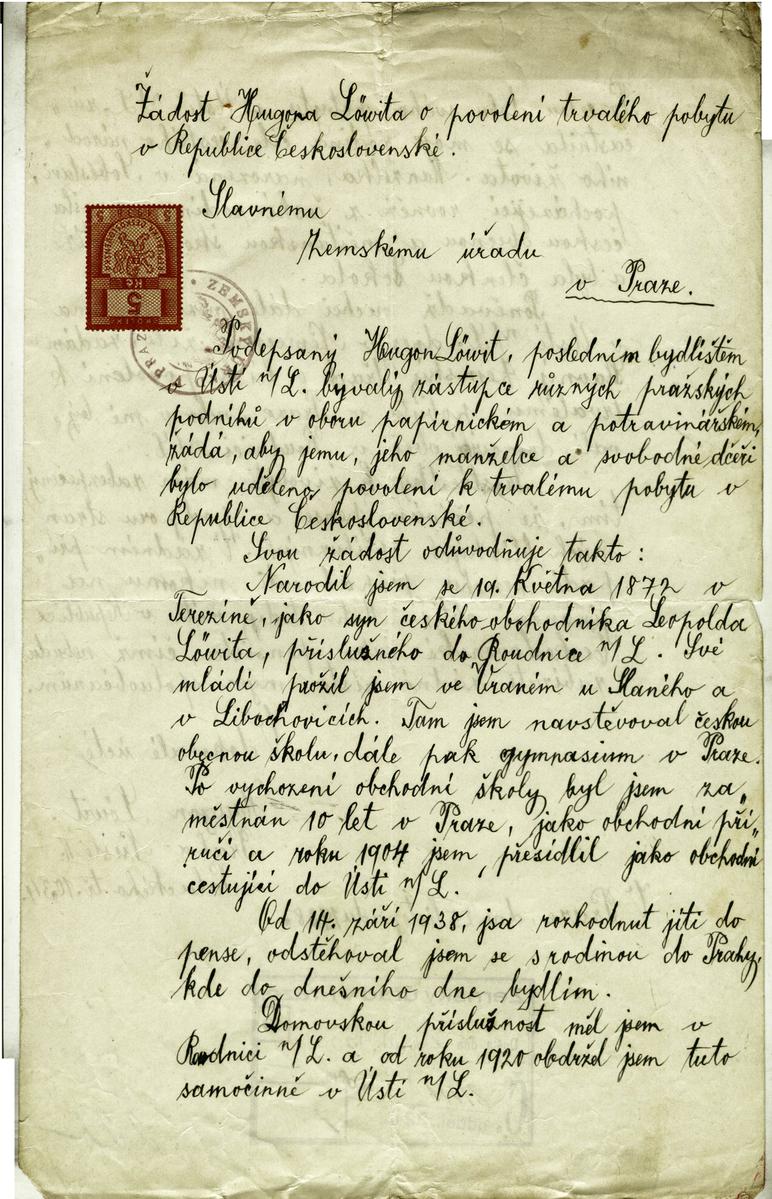 Žádost Hugona Löwita o povolení trvalého pobytu
v Republice Československé.
Slavnému
Zemskému úřadu
v Praze.
5
Kč
ZEMSK
PRA
Podepsaný Hugon Löwit, posledním bydlištěm
v Ústí n/L. bývalý zástupce různých pražských
podniků v oboru papírnickém a potravinářském,
žádá, aby jemu, jeho manželce a svobodné dceři
bylo uděleno povolení k trvalému pobytu v
Republice Československé.
Svou žádost odůvodňuje takto:
Narodil jsem se 19. Května 1872 v
Terezíně, jako syn českého obchodníka Leopolda
Löwita, příslušného do Roudnice n/L. Své
mládí prožil jsem ve Vraném u Slaného a
v Libochovicích. Tam jsem navštěvoval českou
obecnou školu, dále pak gymnasium v Praze.
Po vychození obchodní školy byl jsem za„
městnán 10 let v Praze, jako obchodní pří„
ručí a roku 1904 jsem přesídlil jako obchodní
cestující do Ústí n/L.
Od 14. září 1938, jsa rozhodnut jíti do
pense, odstěhoval jsem se s rodinou do Prahy,
kde do dnešního dne bydlím.
Domovskou příslušnost měl jsem v
Roudnici n/L. a od roku 1920 obdržel jsem tuto
samočinně v Ústí n/L.